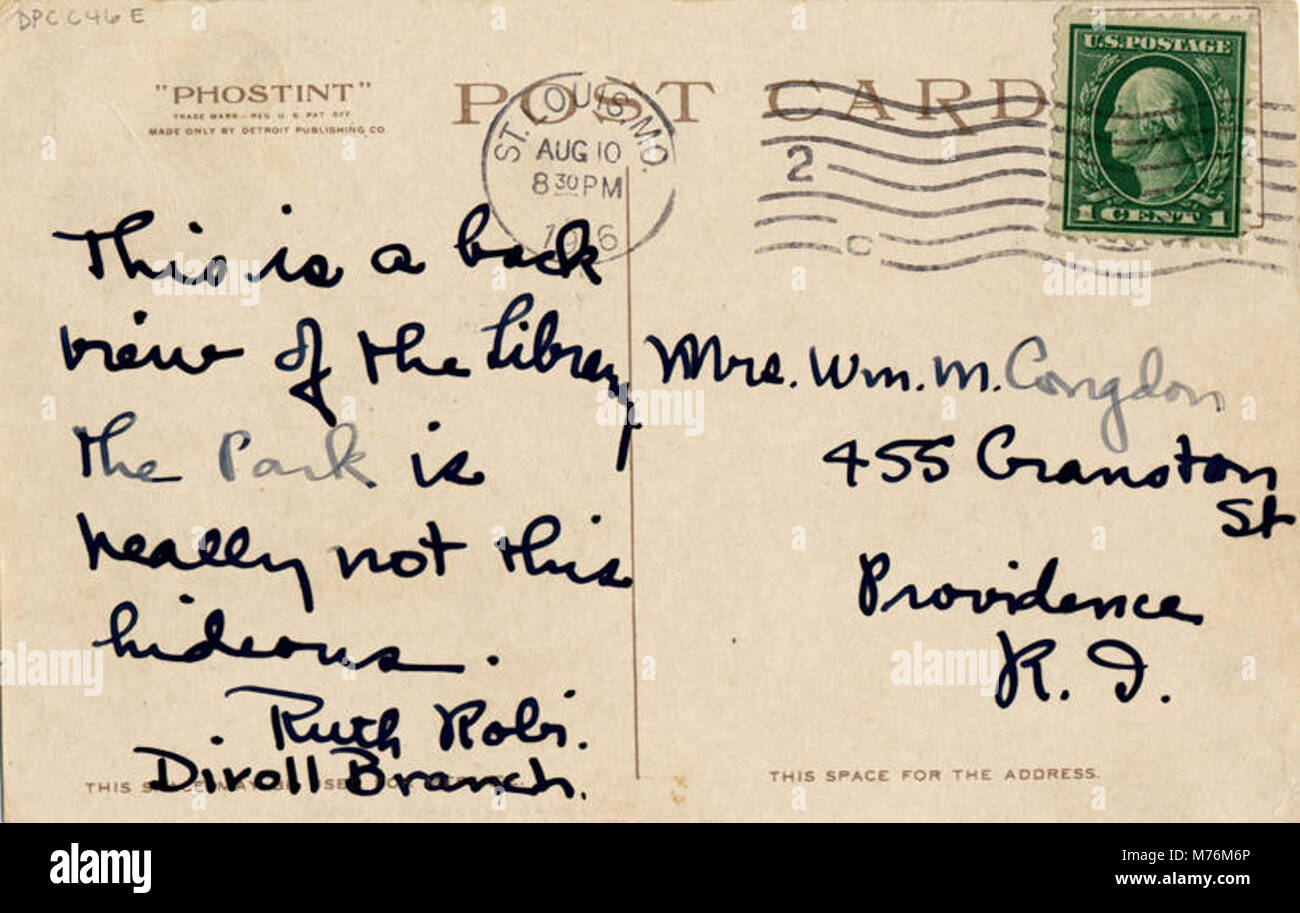 DPC C46 E
"PHOSTINT"
TRADE MARK REG U S PAT OFF
MADE ONLY BY DETROIT PUBLISHING CO
POST CARD
ST. LOUIS, MO.
AUG 10
8 30 PM
2
C
U.S. POSTAGE
1 CENT 1
This is a back
view of the Library
the Park is
really not this
hideous.
Ruth Robi.
Divoll Branch.
THIS
Mrs. Wm. M. Congdon
455 Cranston
St
Providence
R. I.
THIS SPACE FOR THE ADDRESS.
alamy
alamy stock photo
M76M6P
www.alamy.com